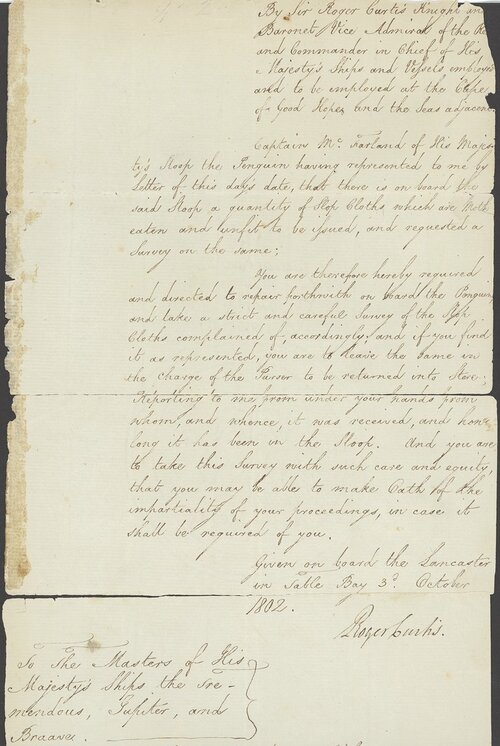 By Sir Roger Curtis Knight and
Baronet, Vice Admiral of the Re
and Commander in Chief of His
Majesty's Ships and Vessels, employe
and to be employed at the Cape
of Good Hope, and the Seas adjacen
Captain Mc. Farland of His Majes-
ty's Sloop the Penguin having represented to me by
Letter of this days date, that there is on board the
said Sloop a quantity of Slop Cloths which are Moth
eaten and unfit to be issued, and requested a
Survey on the same;
You are therefore hereby required
and directed to repair forthwith on board the Penguin
and take a strict and careful Survey of the Slop
Cloths complained of, accordingly; and if you find
it as represented, you are to leave the same in
the charge of the Purser to be returned into Store;
Reporting to me from under your hands from
whom, and whence, it was received, and how
long it has been in the Sloop. And you are
to take this Survey with such care and equity,
that you may be able to make Oath of the
impartiality of your proceedings, in case it
shall be required of you.
Given on board the Lancaster
in Table Bay 3d. October
1802.
Roger Curtis.
To The Masters of His
Majesty's Ships the Tre-
mendous, Jupiter, and
Braave.